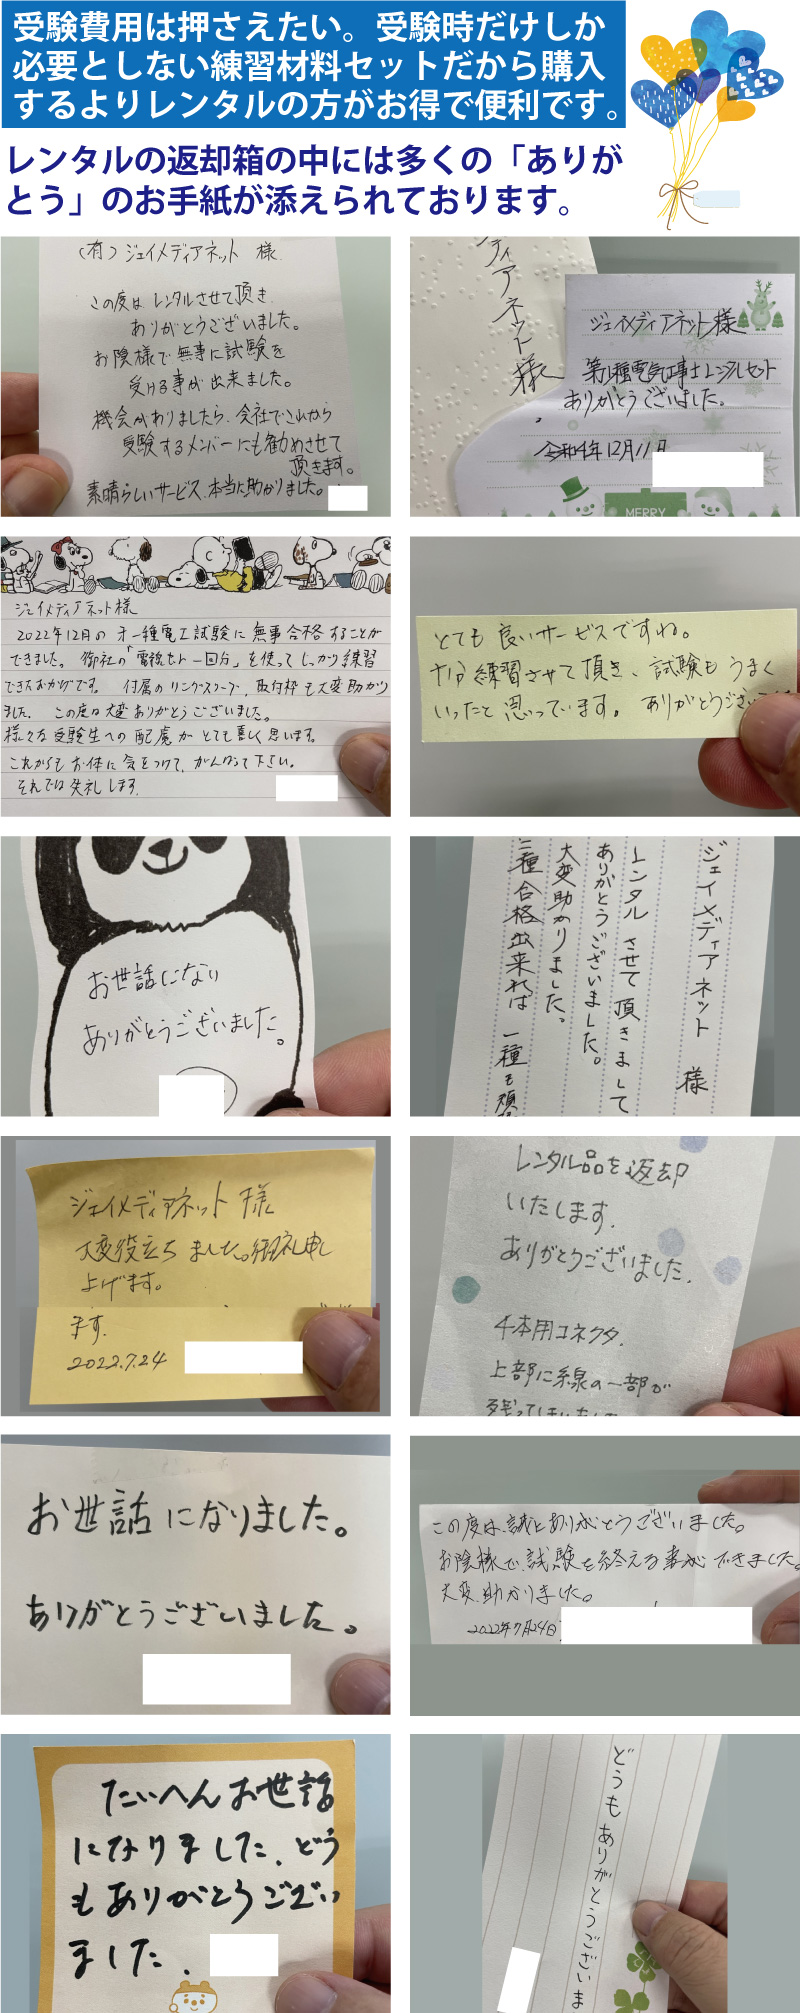 受験費用は押さえたい。受験時だけしか
必要としない練習材料セットだから購入
するよりレンタルの方がお得で便利です。
レンタルの返却箱の中には多くの「ありが
とう」のお手紙が添えられております。
(有)ジェイメディアネット 様
この度は レンタルさせて頂き
ありがとうございました。
お陰様で無事に試験を
受ける事が出来ました。
機会がありましたら、会社でこれから
受験するメンバーにも勧めさせて
頂きます。
素晴らしいサービス、本当に助かりました。
ディアネット様
ジェイメディアネット様
電気工事士レンタルセット
ありがとうございました。
令和4年12月11日
MERRY
ジェイメディアネット様
2022年12月の 第一種電工試験に 無事合格することが
できました。 御社の「電線セット一回分」を使って しっかり練習
できたおかげです。 付属の リングスリーブ、取付枠 も大変助かり
ました。 この度は大変ありがとうございました。
様々な受験生への 配慮が とても喜しく思います。
これからも お体に 気をつけて、がんばって下さい。
それでは 失礼します。
とても 良いサービスですね。
練習させて頂き、試験も うまく
いったと 思っています。 ありがとうござい
お世話になり
ありがとうございました。
ジェイメディアネット 様
レンタル させて 頂きまして
ありがとうございました。
大変助かりました。
二種合格出来れば 一種も
ジェイメディアネット 様
大変役立ち ました。御礼申し
上げます。
ます。
2022.7.24
レンタル品を返却
いたします。
ありがとうございました。
4本用コネクタ、
上部に線の一部が
残ってしまいました
お世話になりました。
ありがとうございました。
この度は、誠にありがとうございました。
お陰様で、試験を終える事ができました。
大変、助かりました。
2022年7月24日
たいへんお世話
になりました、どう
もありがとうござい
ました、
どうもありがとうございま